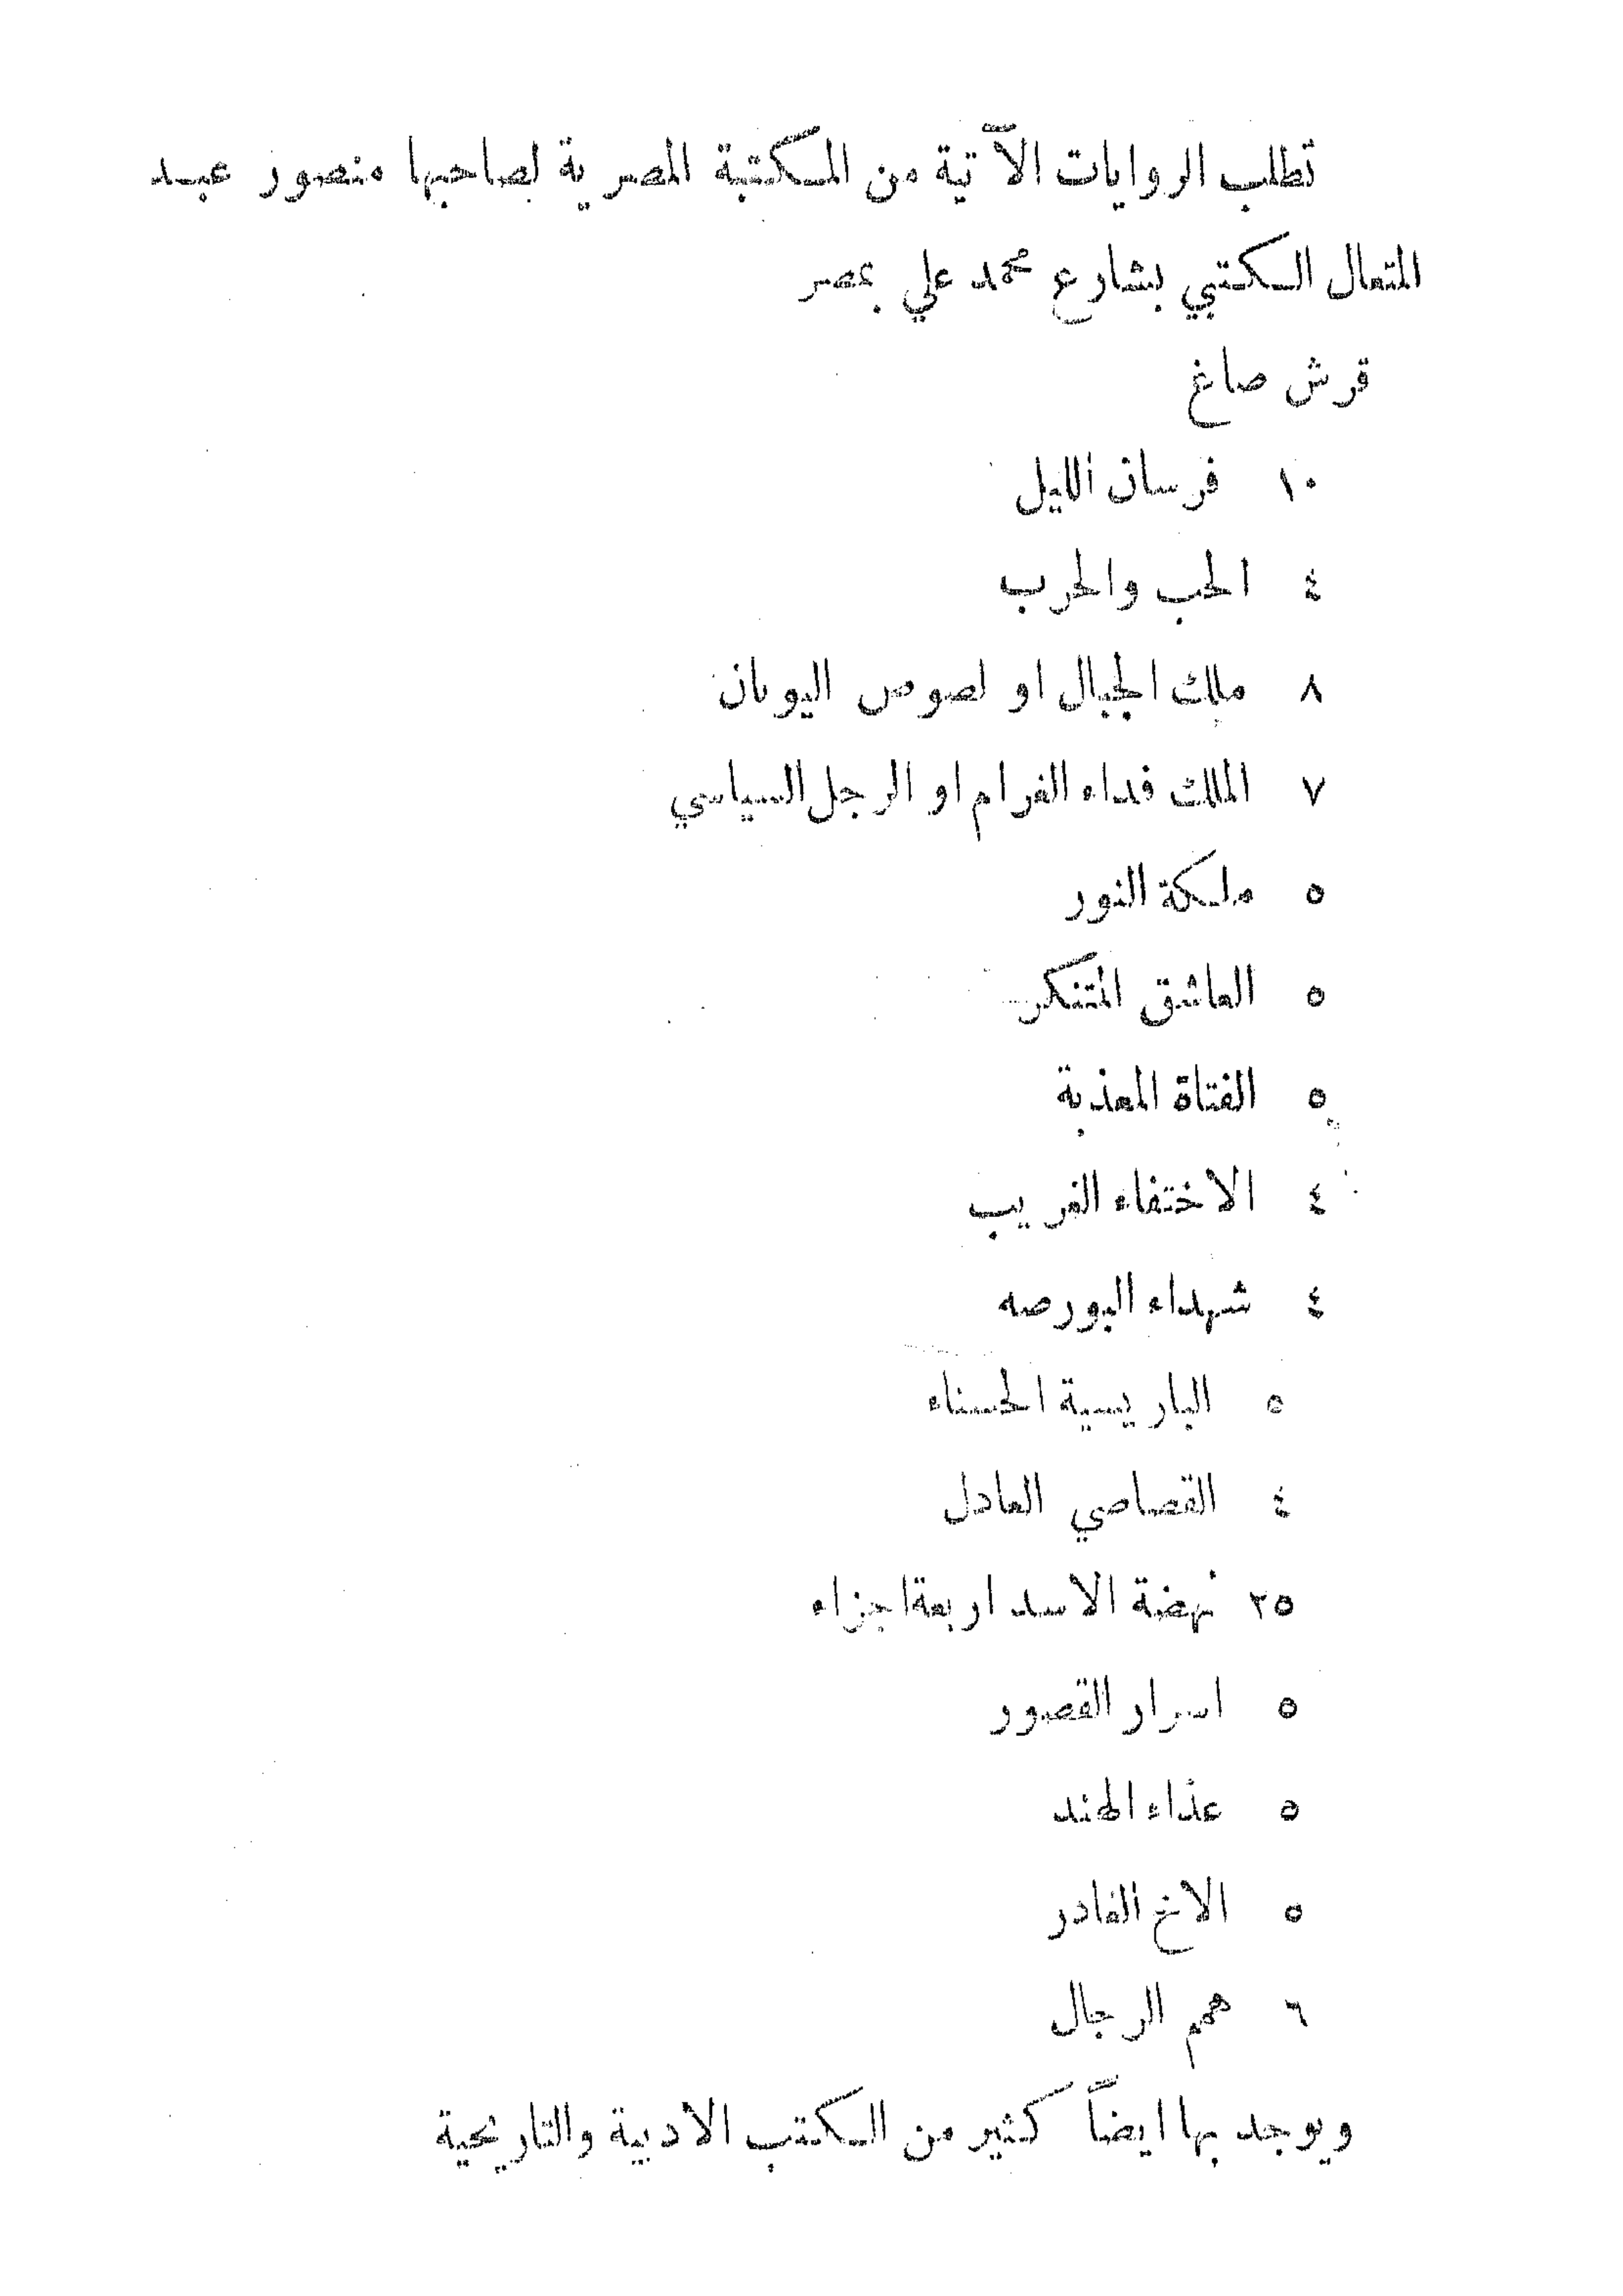 تطلب الروايات الآتية من المكتبة المصرية لصاحبها منصور عبد
المتعال الكتبي بشارع محمد علي بمصر
قرش صاغ
١٠ فرسان الليل
٤ الحب والحرب
٨ ملك الجبال او لصوص اليونان
٧ الملك فداء الغرام او الرجل السياسي
٥ ملكة النور
٥ العاشق المتنكر
٥ الفتاة المعذبة
٤ الاختفاء الغريب
٤ شهداء البورصه
٥ الباريسية الحسناء
٤ القصاصي العادل
٢٥ نهضة الاسد اربعة اجزاء
٥ اسرار القصور
٥ عذاء الهند
٥ الاخ الغادر
٦ همم الرجال
ويوجد بها ايضاً كثير من الكتب الادبية والتاريخية